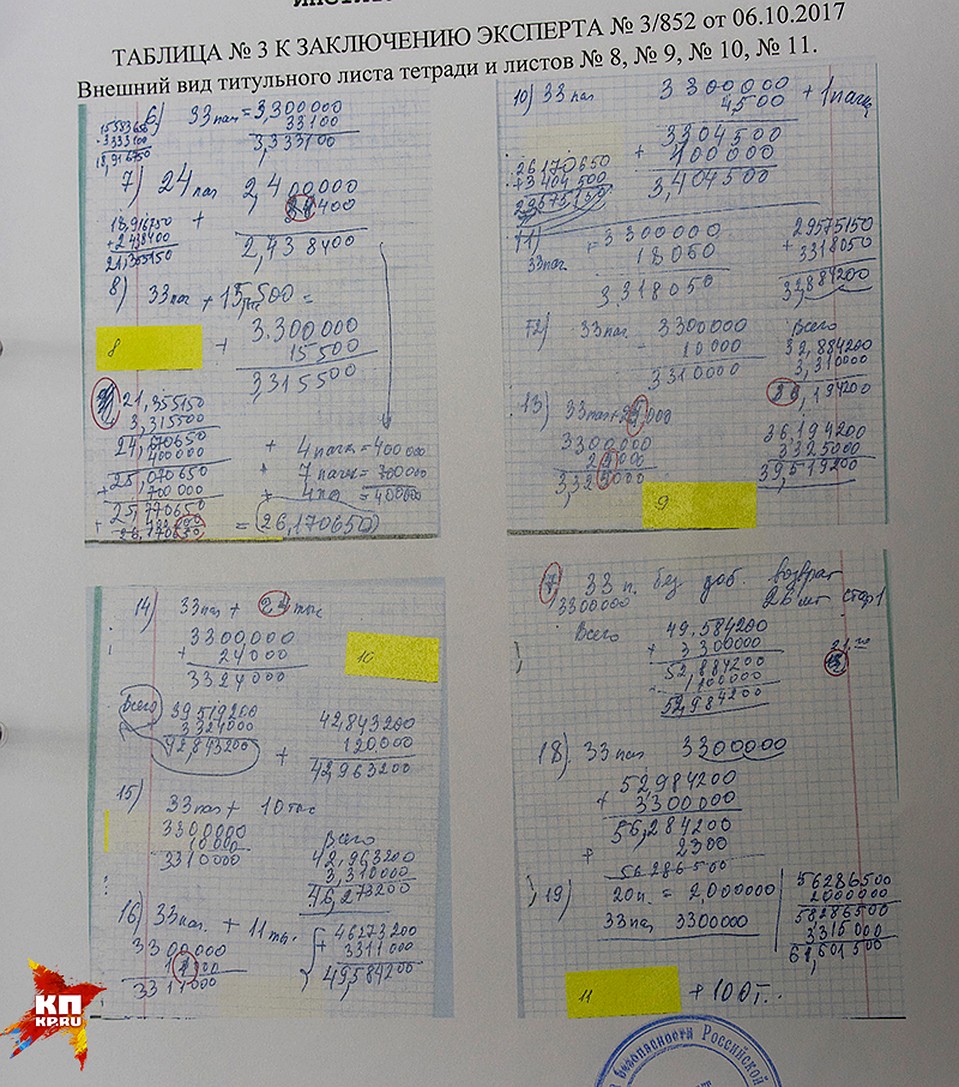 ТАБЛИЦА № 3 К ЗАКЛЮЧЕНИЮ ЭКСПЕРТА № 3/852 от 06.10.2017
Внешний вид титульного листа тетради и листов № 8, № 9, № 10, № 11.
6) 33 пач = 3,300000
33100
3,333100
15583650
3333100
18,916750
7) 24 пач 2,400000
400
2,438400
18,916750
+ 2438400
21,355150
8) 33 пач + 15,500 =
+ 3.300000
15500
3,315500
8
21,355150
3,315500
24,670650
400000
25,070650
+ 700000
25,770650
+ 4 пачк = 400000
+ 7 пачк = 700000
+ 4 па = 400000
= (26,170650)
10) 33 пач 3300000 + 1 пачк
4500
3304500
+ 100000
3,404500
26170650
+ 3404500
11)
33 пач = 3300000
18050
3.318050
29575150
+ 3318050
32,884200
12) 33 пач. 3300000
10000
3310000
Всего
32,884200
3,310000
36,194200
13) 33 пач + 25,000
3300000
25000
3,325000
36,194200
3325000
39,519200
9
14) 33 пач + 24 тыс
3300000
+ 24000
3324000
10
Всего
39519200
+ 3324000
42,843200
+ 42,843200
120000
42,963200
15) 33 пач + 10 тыс
3300000
10000
3310000
Всего
42,963200
3,310000
46,273200
16) 33 пач. + 11 ты.
3300000
11000
3311000
46273200
+ 3311000
49,584200
33 п. без доб. возврат
3300000
26 шт стор 1
Всего 49,584200
+ 3300000
52,884200
100000
52,984200
18). 33 пач 3300000
52984200
+ 3300000
56,284200
+ 2300
56286500
19) 20 п. = 2,000000
33 пач 3300000
56286500
2000000
58286500
3315000
61,601500
11
+ 100 т..
КП
KP.RU
безопасности Российской